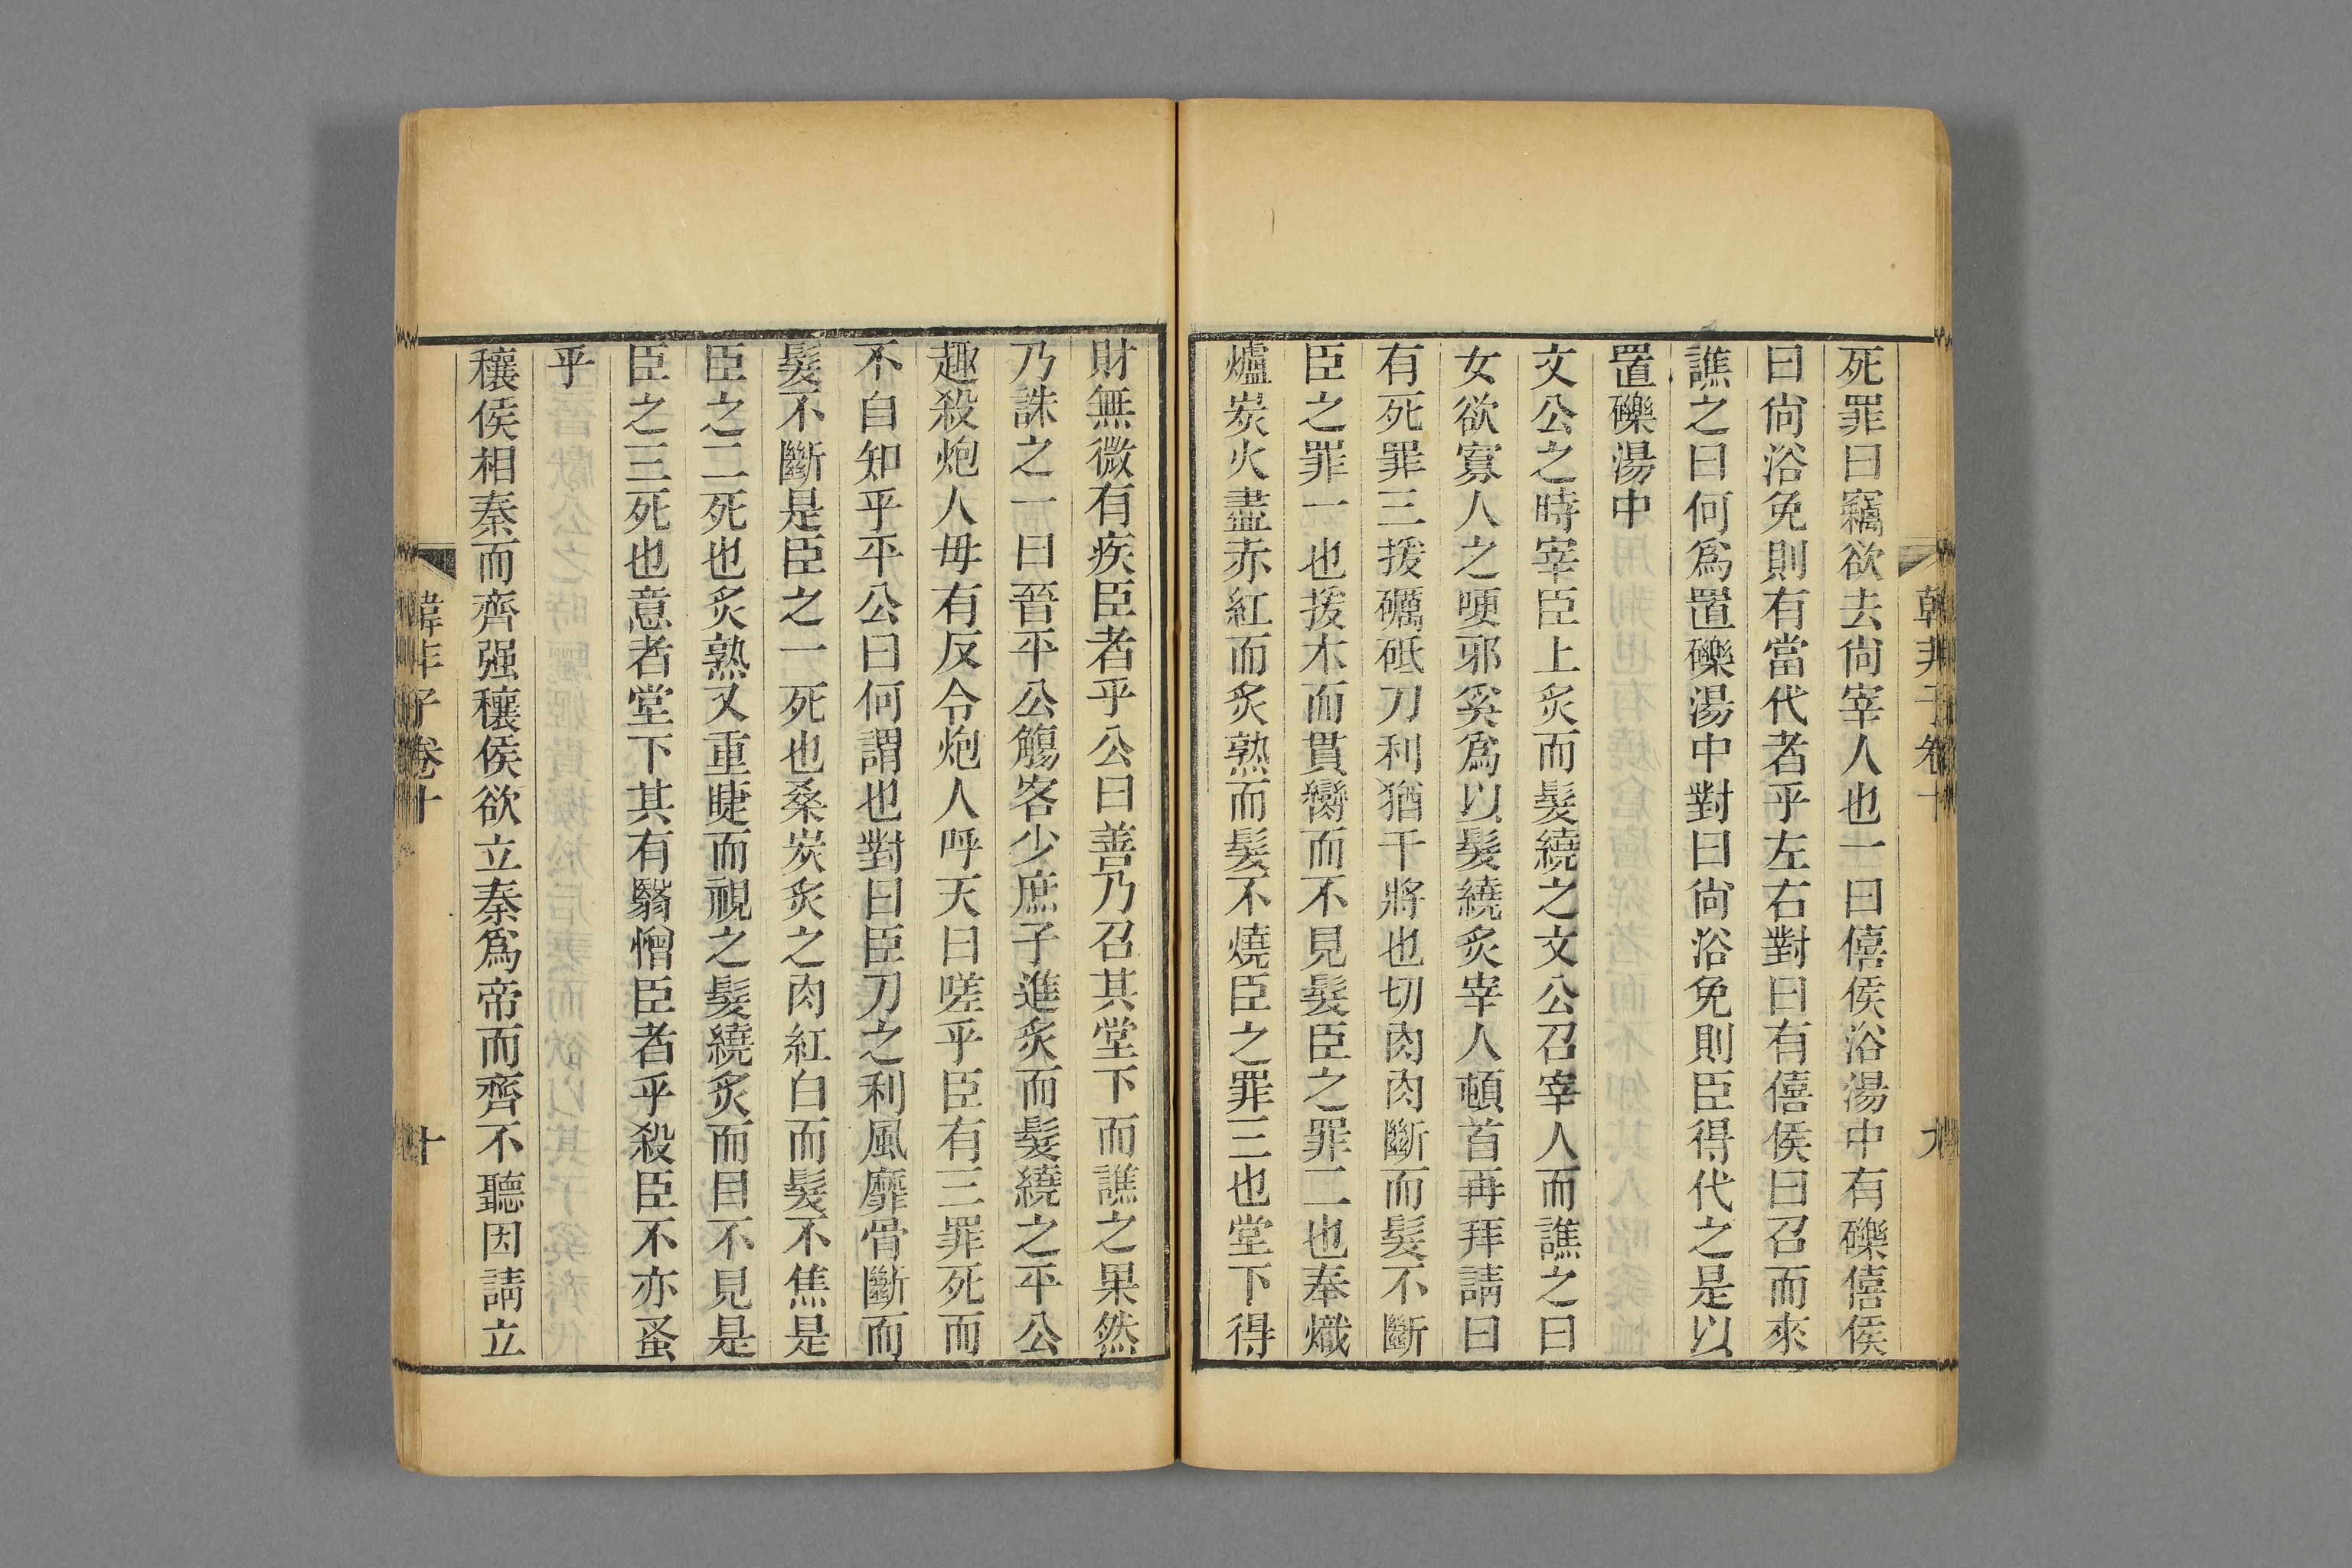 韓非子卷十
九
死罪曰竊欲去尙宰人也一曰僖侯浴湯中有礫僖侯
曰尙浴免則有當代者乎左右對曰有僖侯曰召而來
譙之曰何爲置礫湯中對曰尙浴免則臣得代之是以
置礫湯中
文公之時宰臣上炙而髮繞之文公召宰人而譙之曰
女欲寡人之哽邪奚爲以髮繞炙宰人頓首再拜請曰
有死罪三援礪砥刀利猶干將也切肉肉斷而髮不斷
臣之罪一也援木而貫臠而不見髮臣之罪二也奉熾
爐炭火盡赤紅而炙熟而髮不燒臣之罪三也堂下得
財無微有疾臣者乎公曰善乃召其堂下而譙之果然
乃誅之一曰晉平公觴客少庶子進炙而髮繞之平公
趣殺炮人毋有反令炮人呼天曰嗟乎臣有三罪死而
不自知乎平公曰何謂也對曰臣刀之利風靡骨斷而
髮不斷是臣之一死也桑炭炙之肉紅白而髮不焦是
臣之二死也炙熟又重睫而視之髮繞炙而目不見是
臣之三死也意者堂下其有翳憎臣者乎殺臣不亦蚤
乎
穰侯相秦而齊强穰侯欲立秦爲帝而齊不聽因請立
韓非子卷十
十